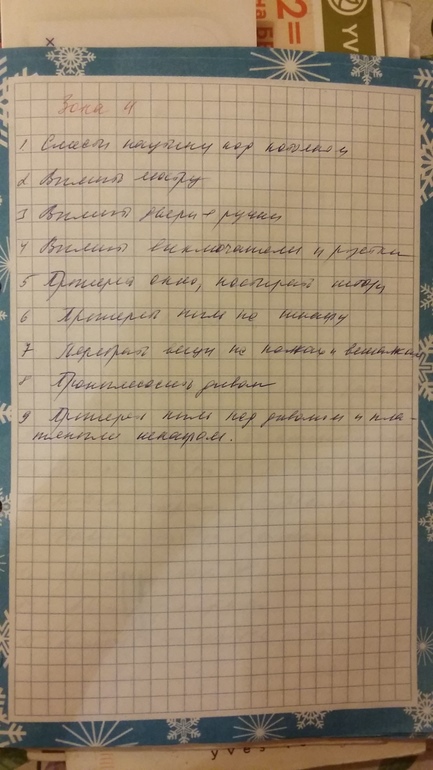 2=
на Бе
YV
x
Зона 4
1 Смести паутину под потолком
2 Вымыть люстру
3 Вымыть двери + ручки
4 Вымыть выключатели и розетки
5 Протереть окно, постирать штору
6 Протереть пыль на шкафу
7 Перебрать вещи на полках и вешалках
8 Пропылесосить диван
9 Протереть пыль под диваном и пла-
тяным шкафом.
yves